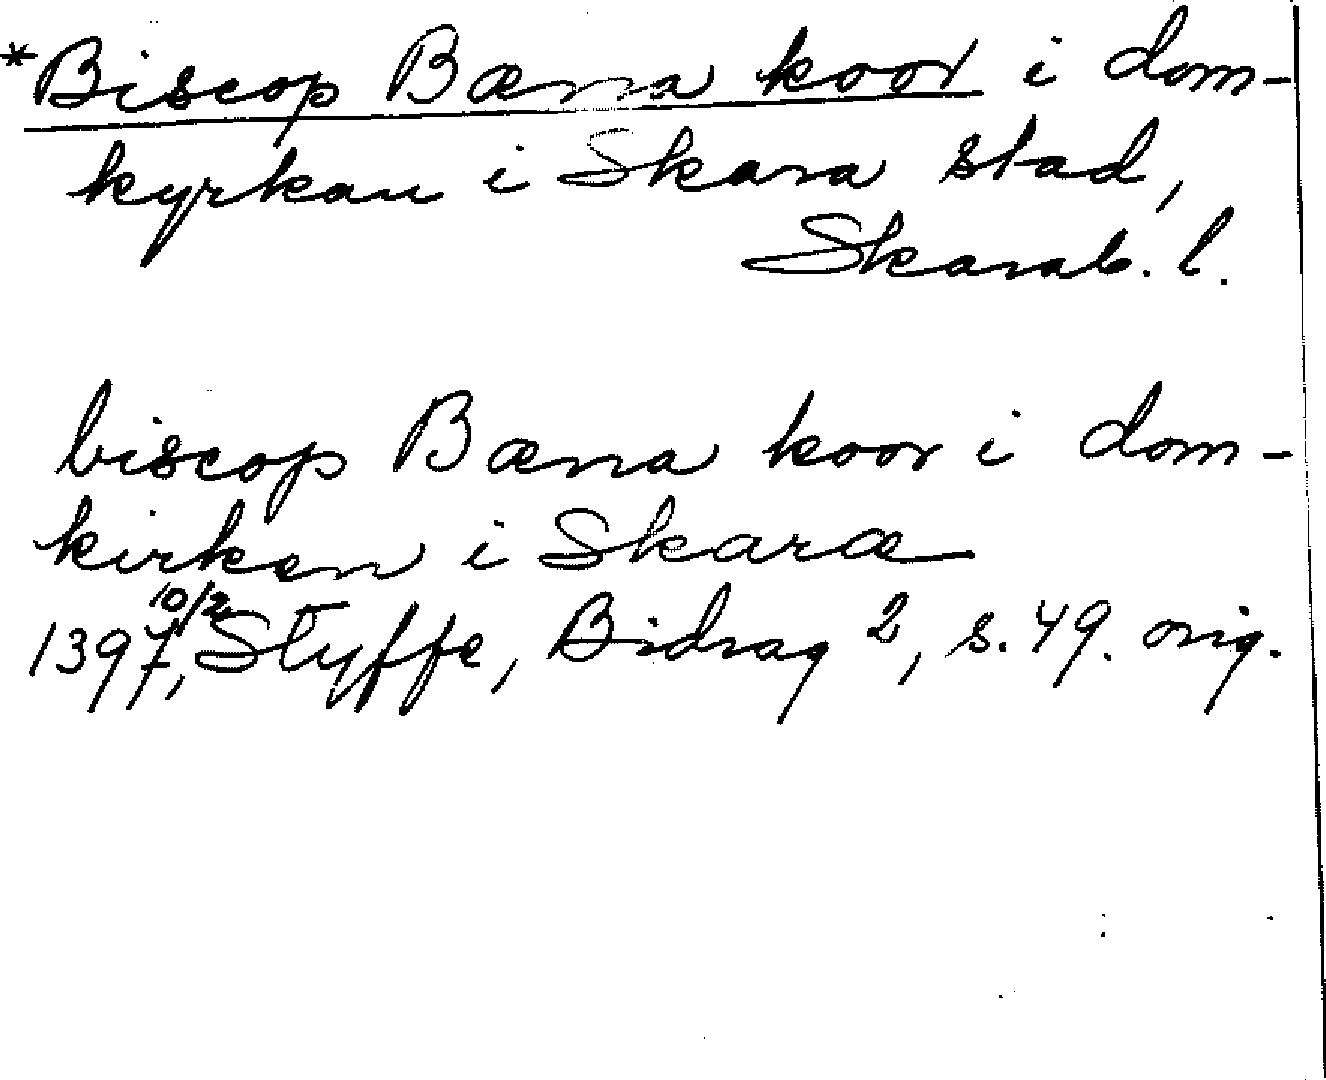 *Biscop Bæna koor i dom-
kyrkan i Skara stad,
Skarab. l.
biscop Bæna koor i dom-
kirken i Skaræ
1397 10/2, Styffe, Bidrag 2, s. 49. orig.